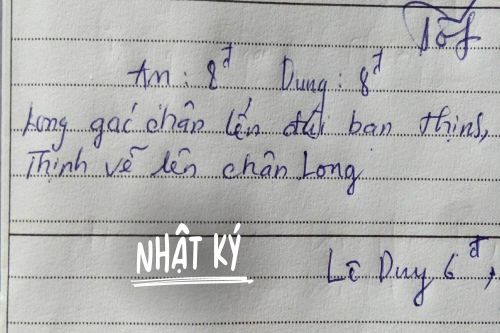 Tốt
An: 8đ Dung: 8đ
Long gác chân lên đùi bạn Thịnh,
Thịnh vẽ lên chân Long
NHẬT KÝ
Lê Duy 6đ,